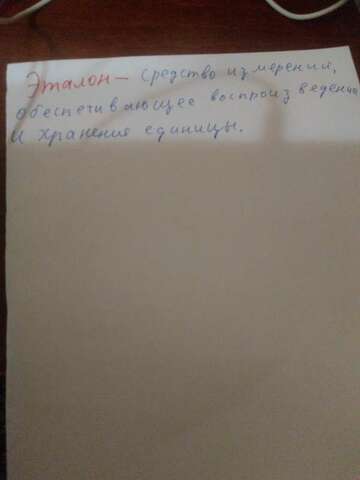 Эталон – средство измерений,
обеспечивающее воспроизведение
и хранение единицы.